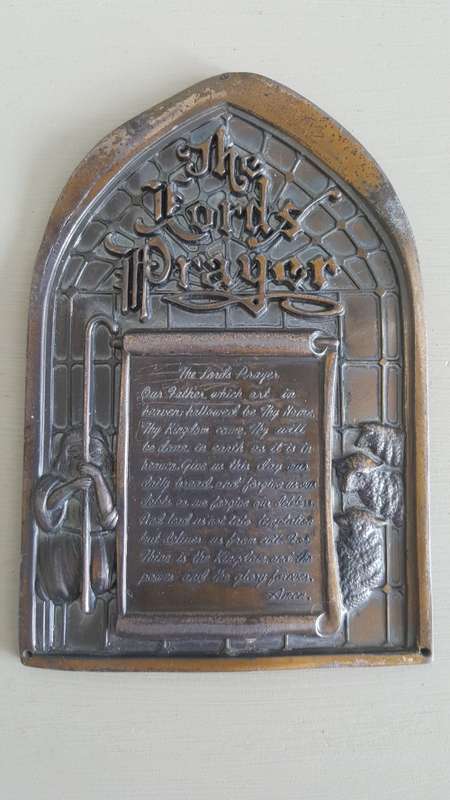 The
Lords
Prayer
The Lords Prayer
Our Father which art in
heaven hallowed be Thy Name.
Thy Kingdom come, Thy will
be done in earth as it is in
heaven. Give us this day our
daily bread and forgive us our
debts as we forgive our debtors
And lead us not into temptation
but deliver us from evil. For
Thine is the Kingdom, and the
power and the glory forever.
Amen.